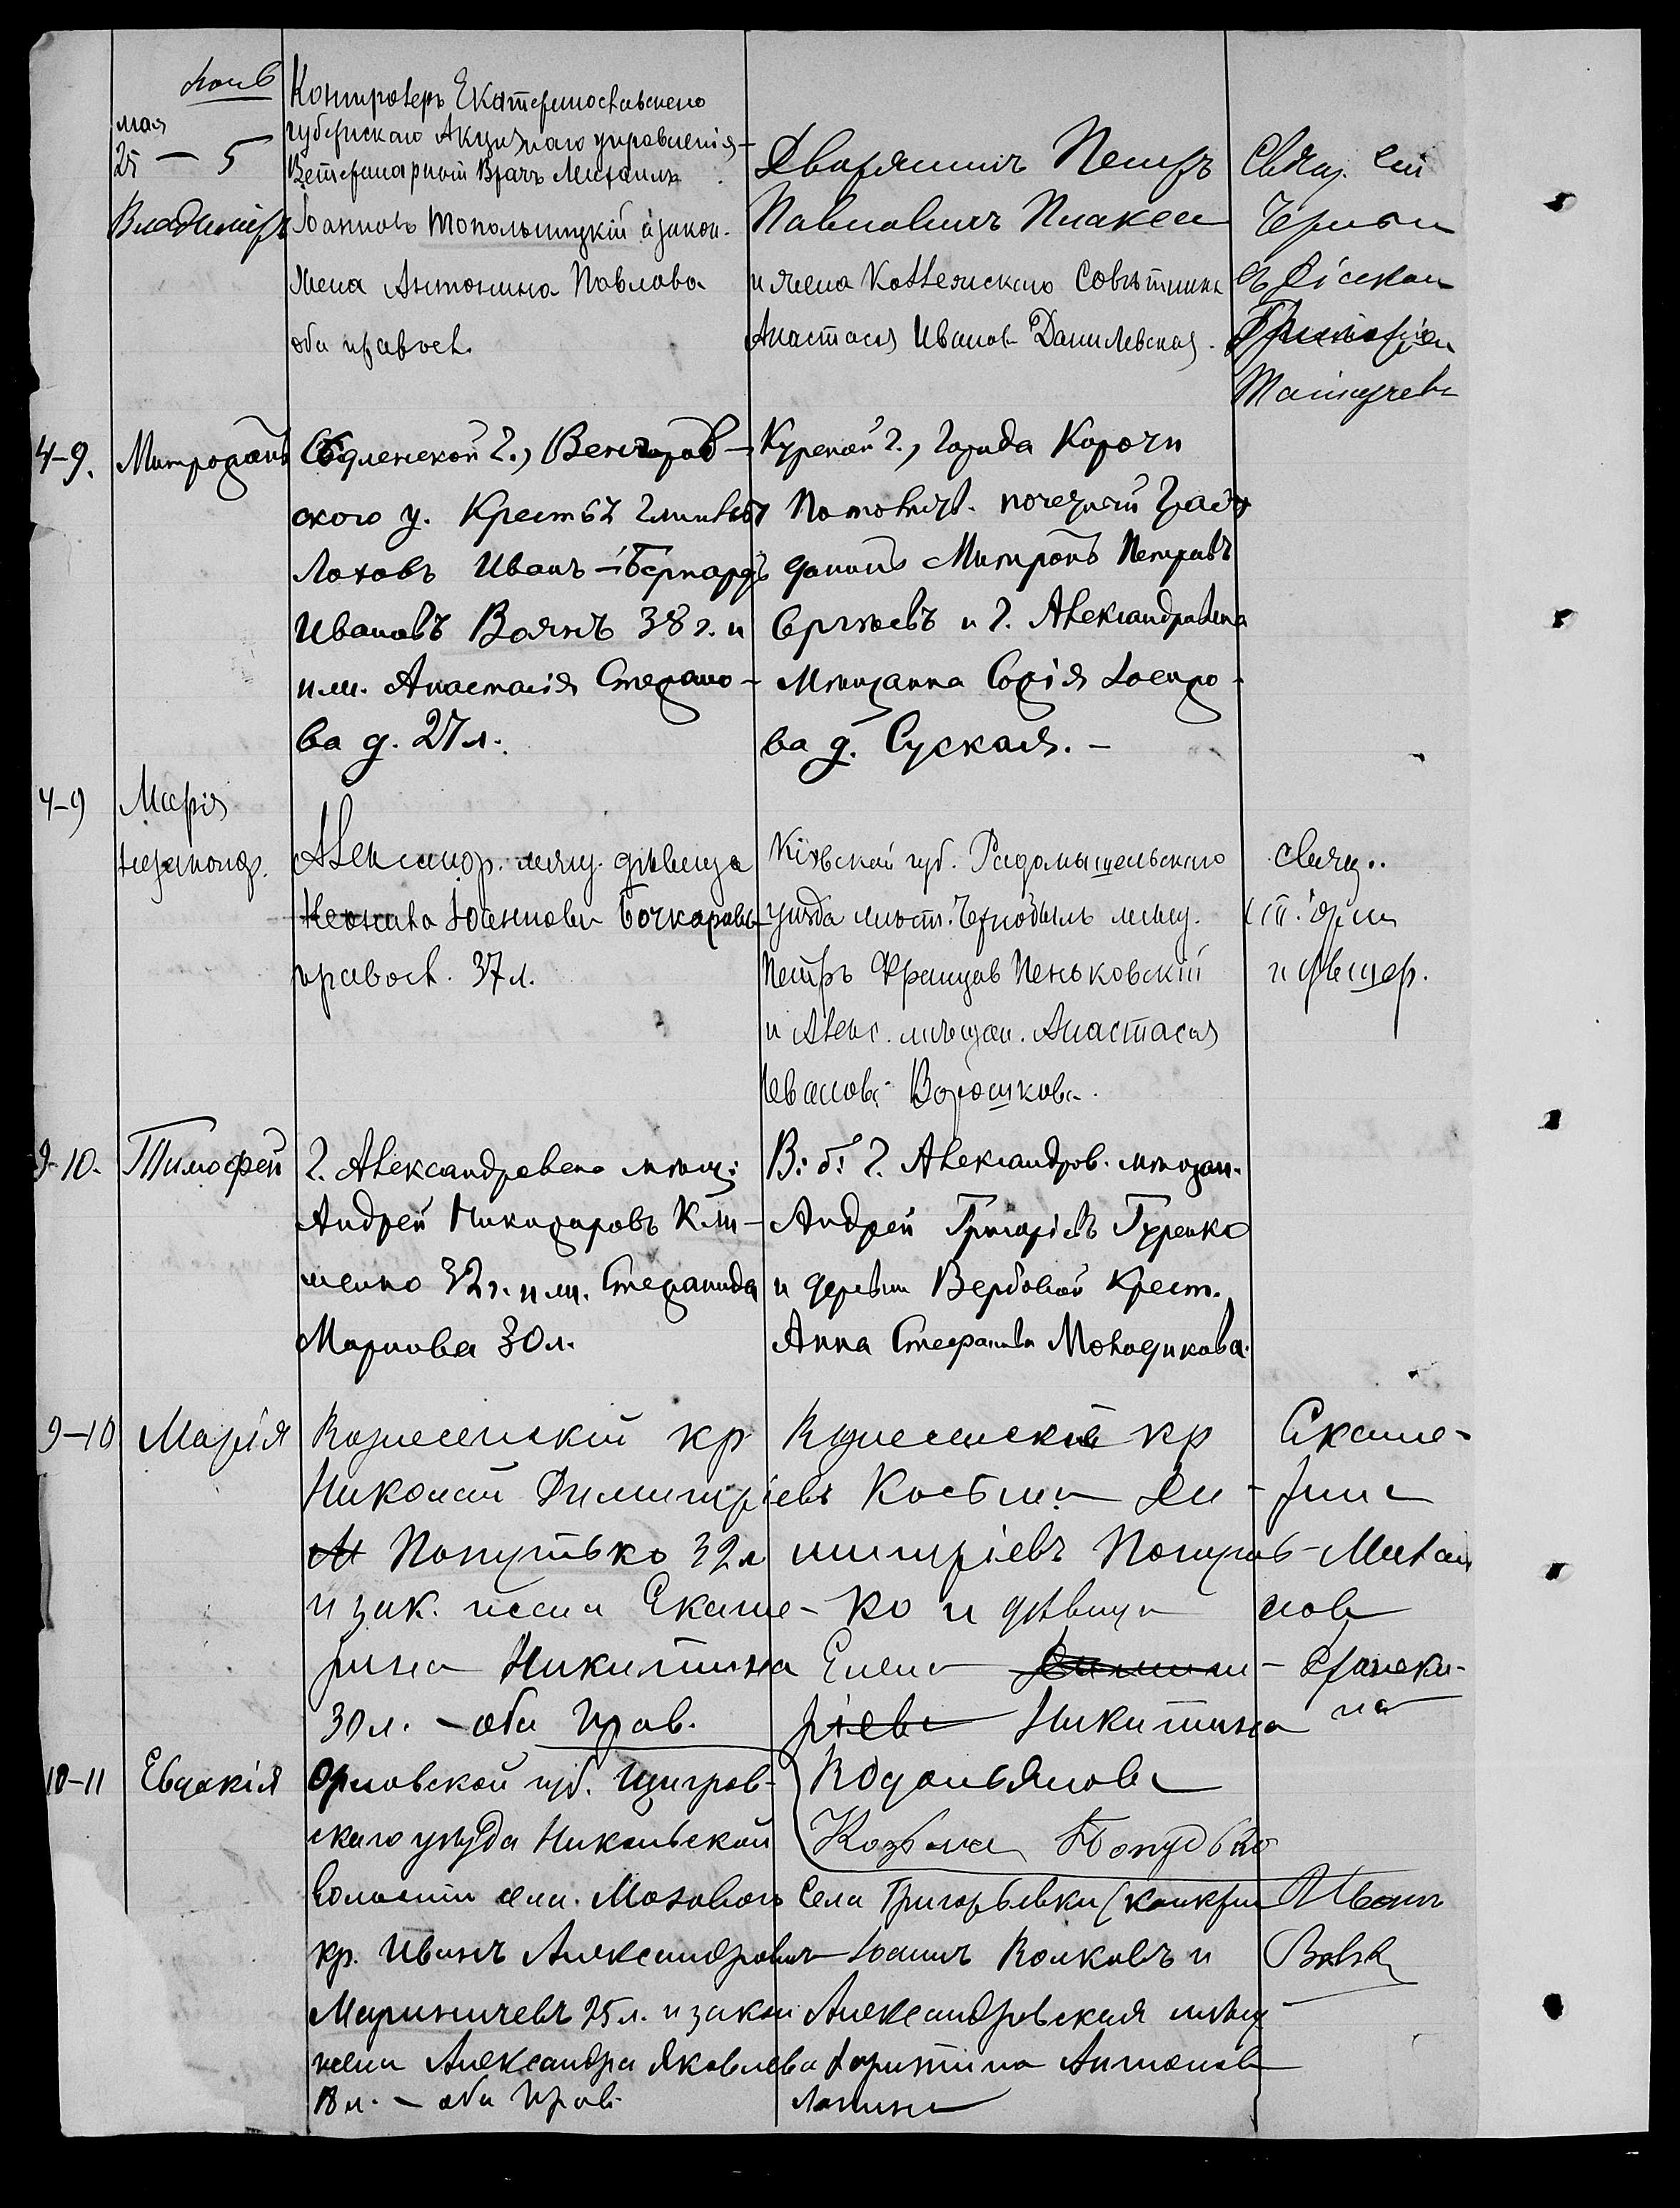 мая
25 — 5
Владиміръ
Контролеръ Екатеринославскаго
губернскаго Акцизнаго управленія
Ветеринарный Врачъ Михаилъ
Іоанновъ Топольницкій и закон.
жена Антонина Павлова
оба правосл.
Дворянинъ Петръ
Павловичъ
и жена Коллежскаго Совѣтника
Анастасія Иванов. Данилевская.
Свящ.
съ діакон
Григоріем
4-9.
Митрофанъ
Сѣдлецкой г., Венгров-
ского у. Крест.
Лоховъ Иванъ-Бернардъ
Ивановъ Воянъ 38 г. и
Анастасія Стефано-
ва д. 27 л.
Курской г., города Корочи
Потомств. почетный Граж
данинъ Митроф. Петровъ
Сергѣевъ и г. Александровска
Мѣщанка Софія Іосифо-
ва д. Суская. —
4-9
Марія
незаконор.
Александр. мѣщ. дѣвица
Іоаннова Бочкарова
правосл. 37 л.
Кіевской губ. Радомышельскаго
уѣзда мѣст. Чернобыль мѣщ.
Петръ Францов Пеньковскій
и Алекс. мѣщан. Анастасія
Иванова Ворошкова.
свящ..
9-10.
Тимофей
г. Александровска мѣщ:
Андрей Никифоровъ Кли-
менко 32 г. и Стефанида
Маркова 30 л.
В: б: г. Александров. мѣщан.
Андрей Григорьевъ Гуренко
и деревни Вербовой Крест.
Анна Стефанова Молодикова.
9-10
Марія
Вознесенскій кр
Николай Димитріевъ
Попутько 32 л
и зак. жена Екате-
рина Никитина
30 л. — оба Прав.
Вознесенскій кр
Косьма Ди-
митріевъ Попуть-
ко и дѣвица
Елена Димит-
ріева Никитина
Водольянова
Козьма Попудько
Екате-
рина
Михай
лова
10-11
Евдокія
Орловской губ. Щигров-
скаго уѣзда Никольской
волости села Мохового
кр. Иванъ Александровъ
Мариничевъ 25 л. и закон
жена Александра Яковлева
18 л. — оба Прав.
Села Григорьевки
Іоаннъ Волковъ и
Александровская мѣщ
Харитина Антонова
Лапина
Иванъ
Волков